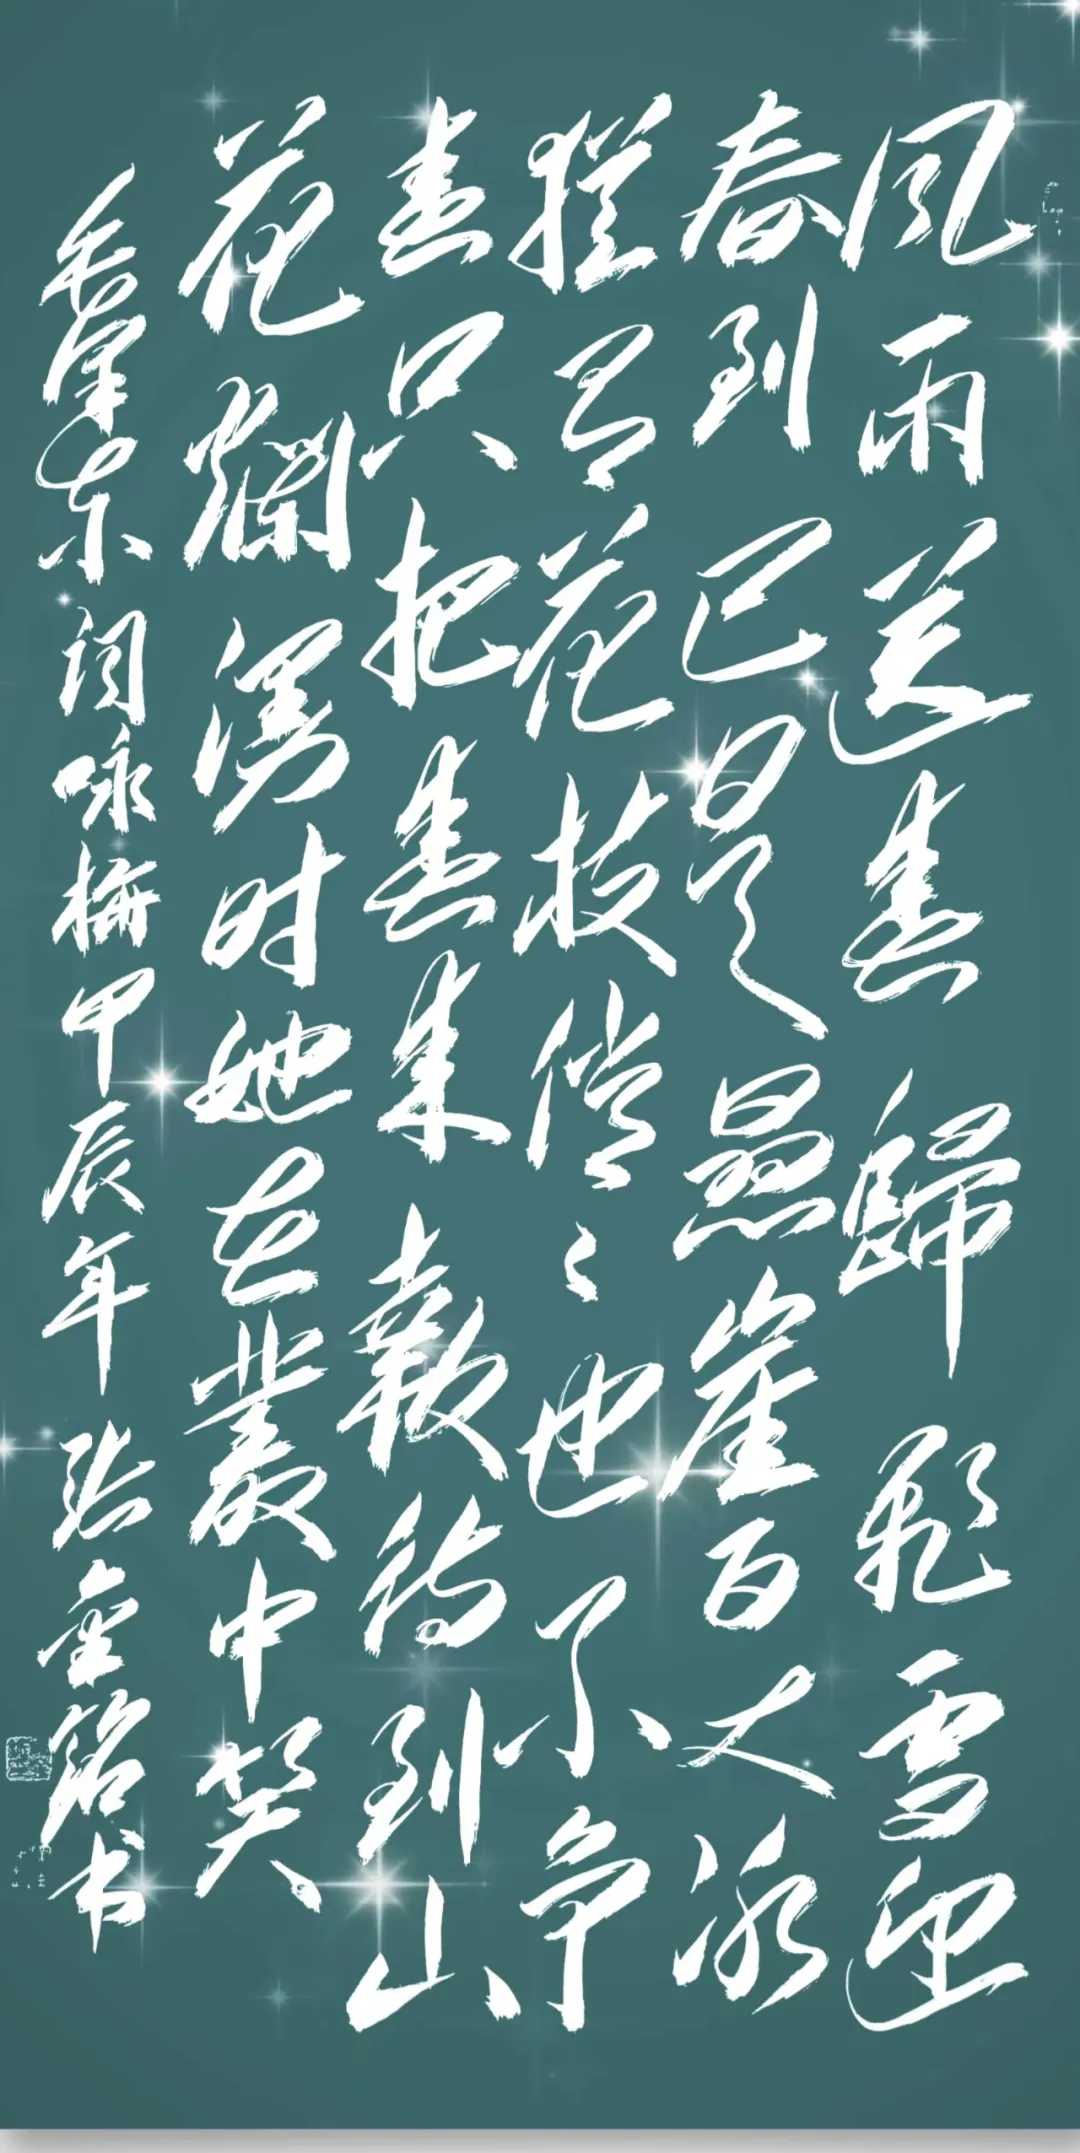 风雨送春歸飛雪迎
春到已是悬崖百丈冰
猶有花枝俏〻也不争
春只把春来報待到山
花爛漫时她在叢中笑
毛泽东词咏梅甲辰年张金铭书